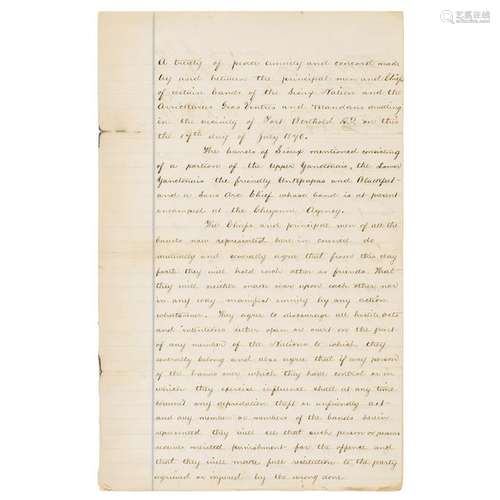 艺狐在线
A treaty of peace amnity and concord made
by and between the principal men and Chiefs
of certain bands of the Sioux Nation and the
Gros Ventres and Mandans dwelling
in the vicinity of Fort Berthold on this
the 17th day of July 1870.
The bands of Sioux mentioned consisting
of a portion of the Upper Yanctonais, the Lower
Yanctonais the friendly Unkpapas and Blackfeet
and a Sans Arc Chief whose band is at present
encamped at the Cheyenne Agency.
The Chiefs and principal men of all the
bands now represented here in council do
mutually and severally agree that from this day
forth they will hold each other as friends. That
they will neither make war upon each other nor
in any way manifest enmity by any action
whatsoever. They agree to discourage all hostile acts
and intentions either open or covert on the part
of any member of the Nations to which they
severally belong and also agree that if any person
of the bands over which they have control or in
which they exercise influence shall at any time
commit any depredation theft or unfriendly act
and any member or members of the bands herein
represented they will see that such person or persons
receive merited punishment for the offence and
that they will make full restitution to the party
aggrieved or injured by the wrong done